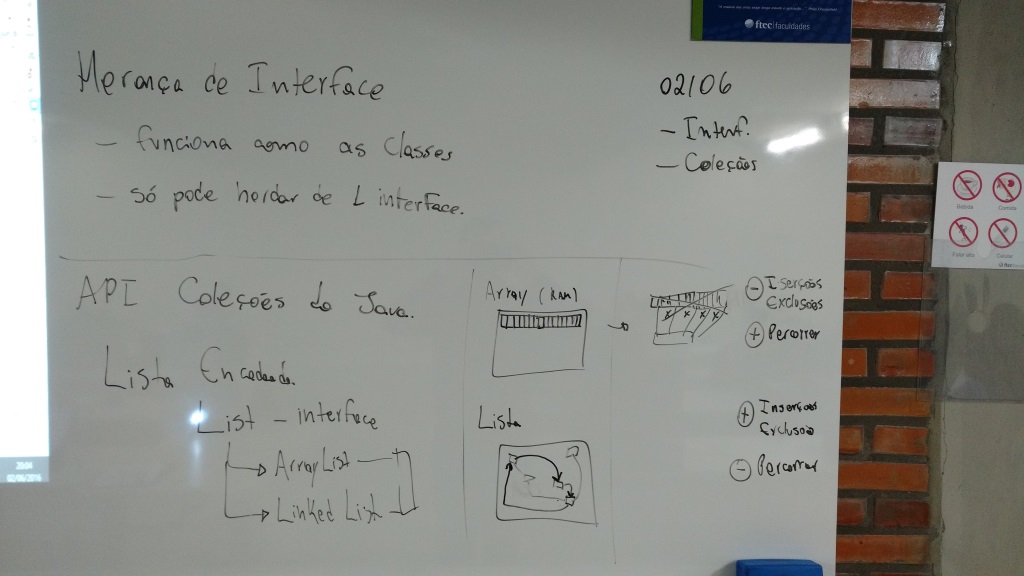 Herança de Interface
- funciona como as Classes
- só pode herdar de 1 interface.
02/06
- Interf.
- Coleções
API Coleções do Java.
Lista Encadeada.
List - interface
ArrayList
Linked List
Array (RAM)
- Iserções
Exclusões
+ Percorrer
Lista
+ Inserções
Exclusão
- Percorrer
ftec faculdades
Bebida
Comida
Fumar
Celular
20:04
02/06/2016